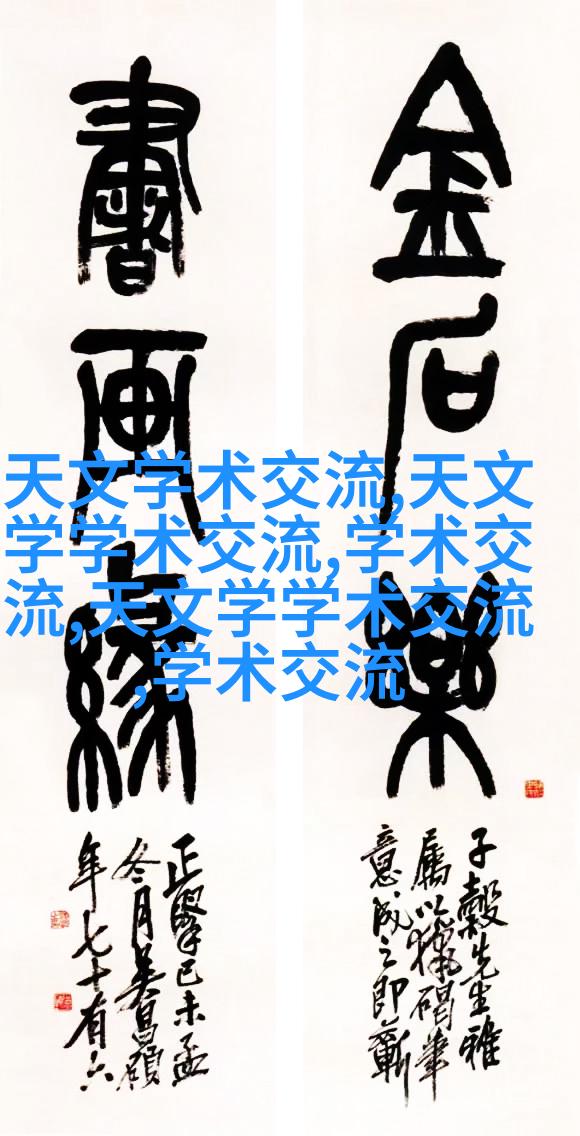 金石樂
子穀先生雅
屬以獵碣筆
意成之即蘄
書画緣
正己未孟
冬月吳昌碩
年七十有六
天文学术交流,天文
学学术交流,学术交
流,天文学学术交流
,学术交流